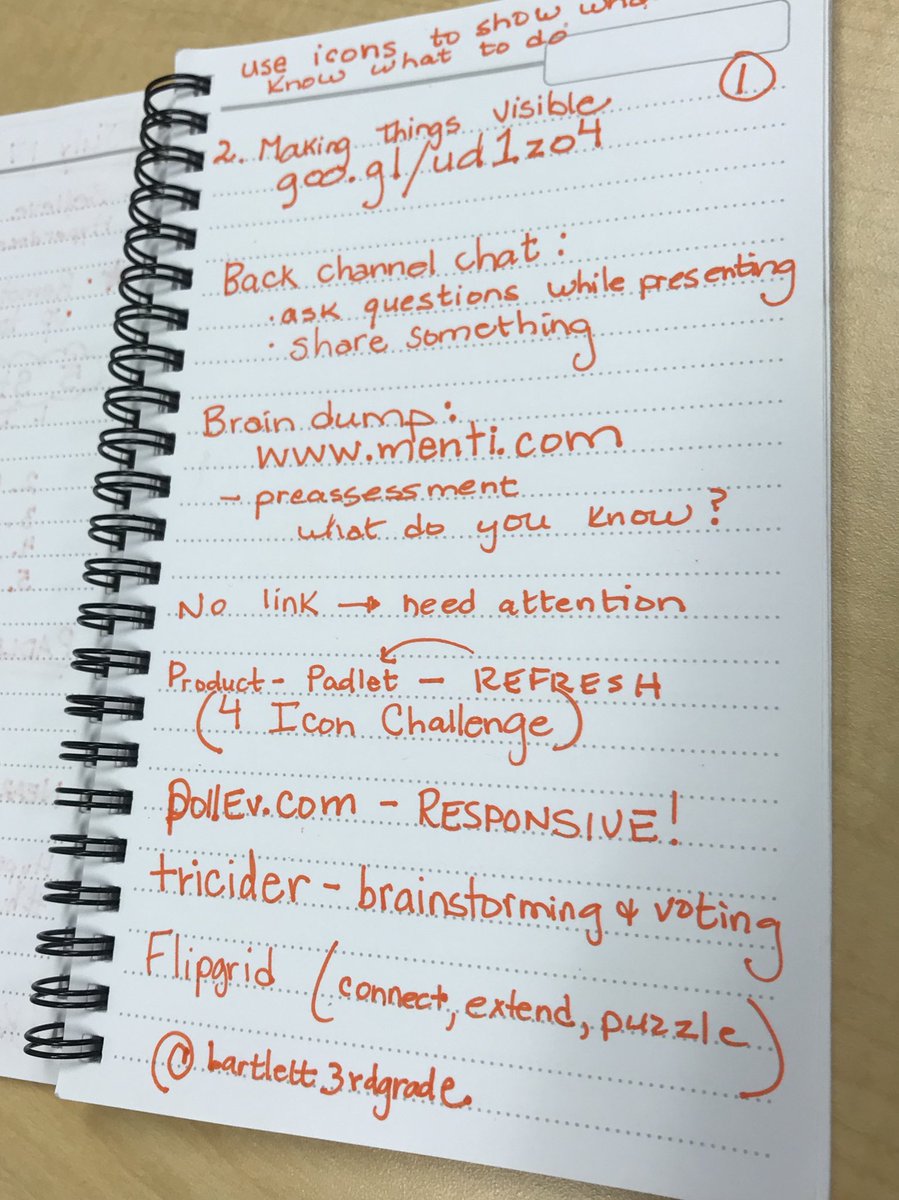 use icons to show what
know what to do
1
2. Making things visible
goo.gl/ud1zo4
Back channel chat:
· ask questions while presenting
· share something
Brain dump:
www.menti.com
- preassessment
what do you know?
No link → need attention
Product - Padlet - REFRESH
(4 Icon Challenge)
pollEv.com - RESPONSIVE!
tricider - brainstorming & voting
Flipgrid (connect, extend, puzzle)
@bartlett3rdgrade